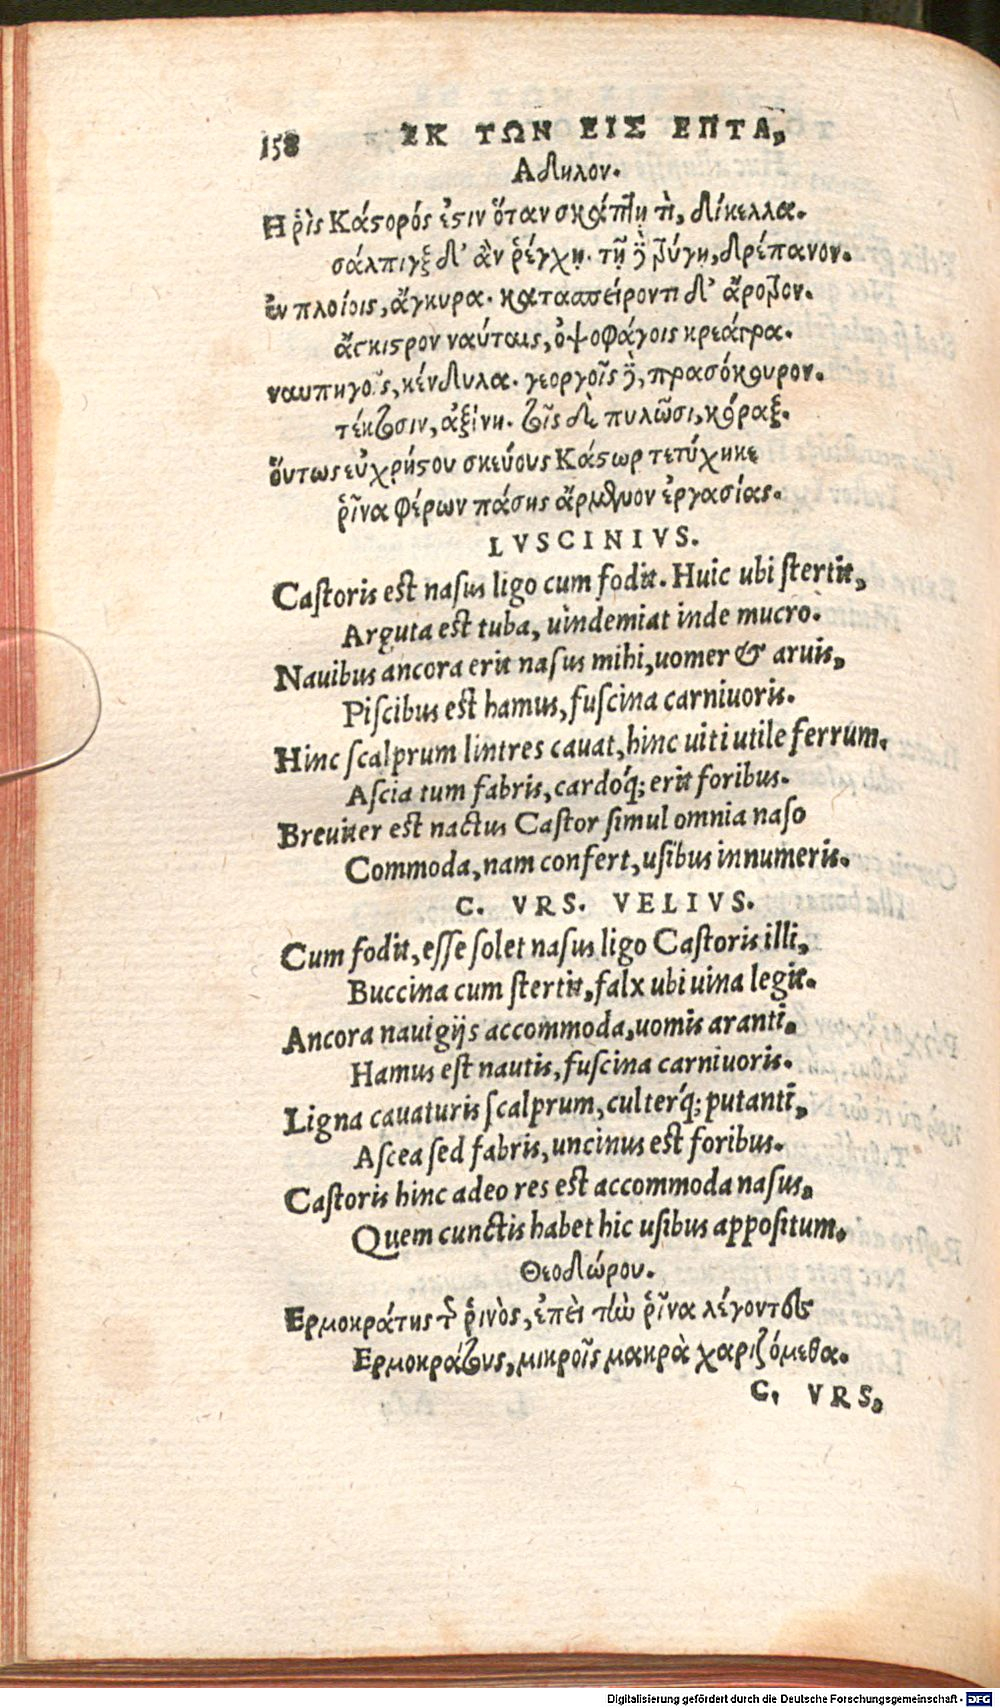 158 ΕΚ ΤΩΝ ΕΙΣ ΕΠΤΑ,
Αδηλον.
Η ῥὶς Κάστορός ἐστιν ὅταν σκάπτῃ τὶ, δίκελλα.
σάλπιγξ δ' ἂν ῥέγχῃ. τῇ δὲ τρύγῃ, δρέπανον.
ἐν πλοίοις, ἄγκυρα. κατασπείροντι δ' ἄροτρον.
ἄγκιστρον ναύταις, ὀψοφάγοις κρεάγρα.
ναυπηγοῖς, κένδυλα. γεοργοῖς δὲ, πρασόκουρον.
τέκτοσιν, ἀξίνη. τοῖς δὲ πυλῶσι, κόραξ.
ὅυτως εὐχρήστου σκεύους Κάστωρ τετύχηκε
ῥῖνα φέρων πάσης ἄρμενον ἐργασίας.
LVSCINIVS.
Caſtoris eſt naſus ligo cum fodit. Huic ubi ſtertit,
Arguta eſt tuba, uindemiat inde mucro.
Nauibus ancora erit naſus mihi, uomer & aruis,
Piſcibus eſt hamus, fuſcina carniuoris.
Hinc ſcalprum lintres cauat, hinc uiti utile ferrum.
Aſcia tum fabris, cardoq́; erit foribus.
Breuiter eſt nactus Caſtor ſimul omnia naſo
Commoda, nam confert, uſibus innumeris.
C. VRS. VELIVS.
Cum fodit, eſſe ſolet naſus ligo Caſtoris illi,
Buccina cum ſtertit, falx ubi uina legit.
Ancora nauigijs accommoda, uomis aranti,
Hamus eſt nautis, fuſcina carniuoris.
Ligna cauaturis ſcalprum, culterq́; putanti,
Aſcea ſed fabris, uncinus eſt foribus.
Caſtoris hinc adeo res eſt accommoda naſus,
Quem cunctis habet hic uſibus appoſitum.
Θεοδώρου.
Ερμοκράτης τῆς ῥινὸς, ἐπεὶ τὴν ῥῖνα λέγοντες
Ερμοκράτους, μικροῖς μακρὰ χαριζόμεθα.
C. VRS,
Digitalisierung gefördert durch die Deutsche Forschungsgemeinschaft - DFG